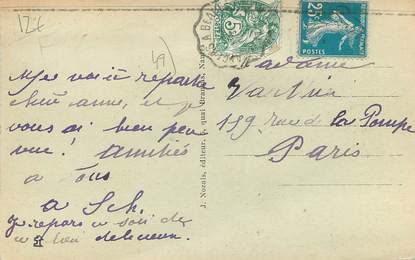 12f
49
Me voici repartie
chère amie, et je
vous ai bien peu
vue! Amitiés
a Tous
a Sch.
Je repars ce soir de
ce lieu delicieux.
J. Nozais, éditeur, quai Brancas, Nan
5c
25c
POSTES
Madame
159 rue de la Pompe
Paris